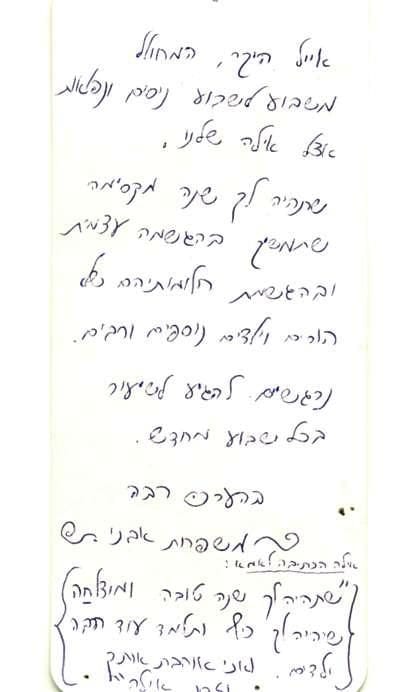 אייל היקר, המחולל
משבוע לשבוע ניסים ונפלאות
אצל אילה שלנו.
שתהיה לך שנה מקסימה
שתמשיך בהגשמה עצמית
ובהגשמת חלומותיהם של
הורים וילדים נוספים ורבים.
נרגשים להגיע לשיעור
בכל שבוע מחדש.
בהערכה רבה
משפחת אבני
אילה הכתיבה לאמא:
"שתהיה לך שנה טובה ומוצלחה
שיהיה לך כיף ותלמד עוד הרבה
ילדים. ואני אוהבת אותך
אילה"